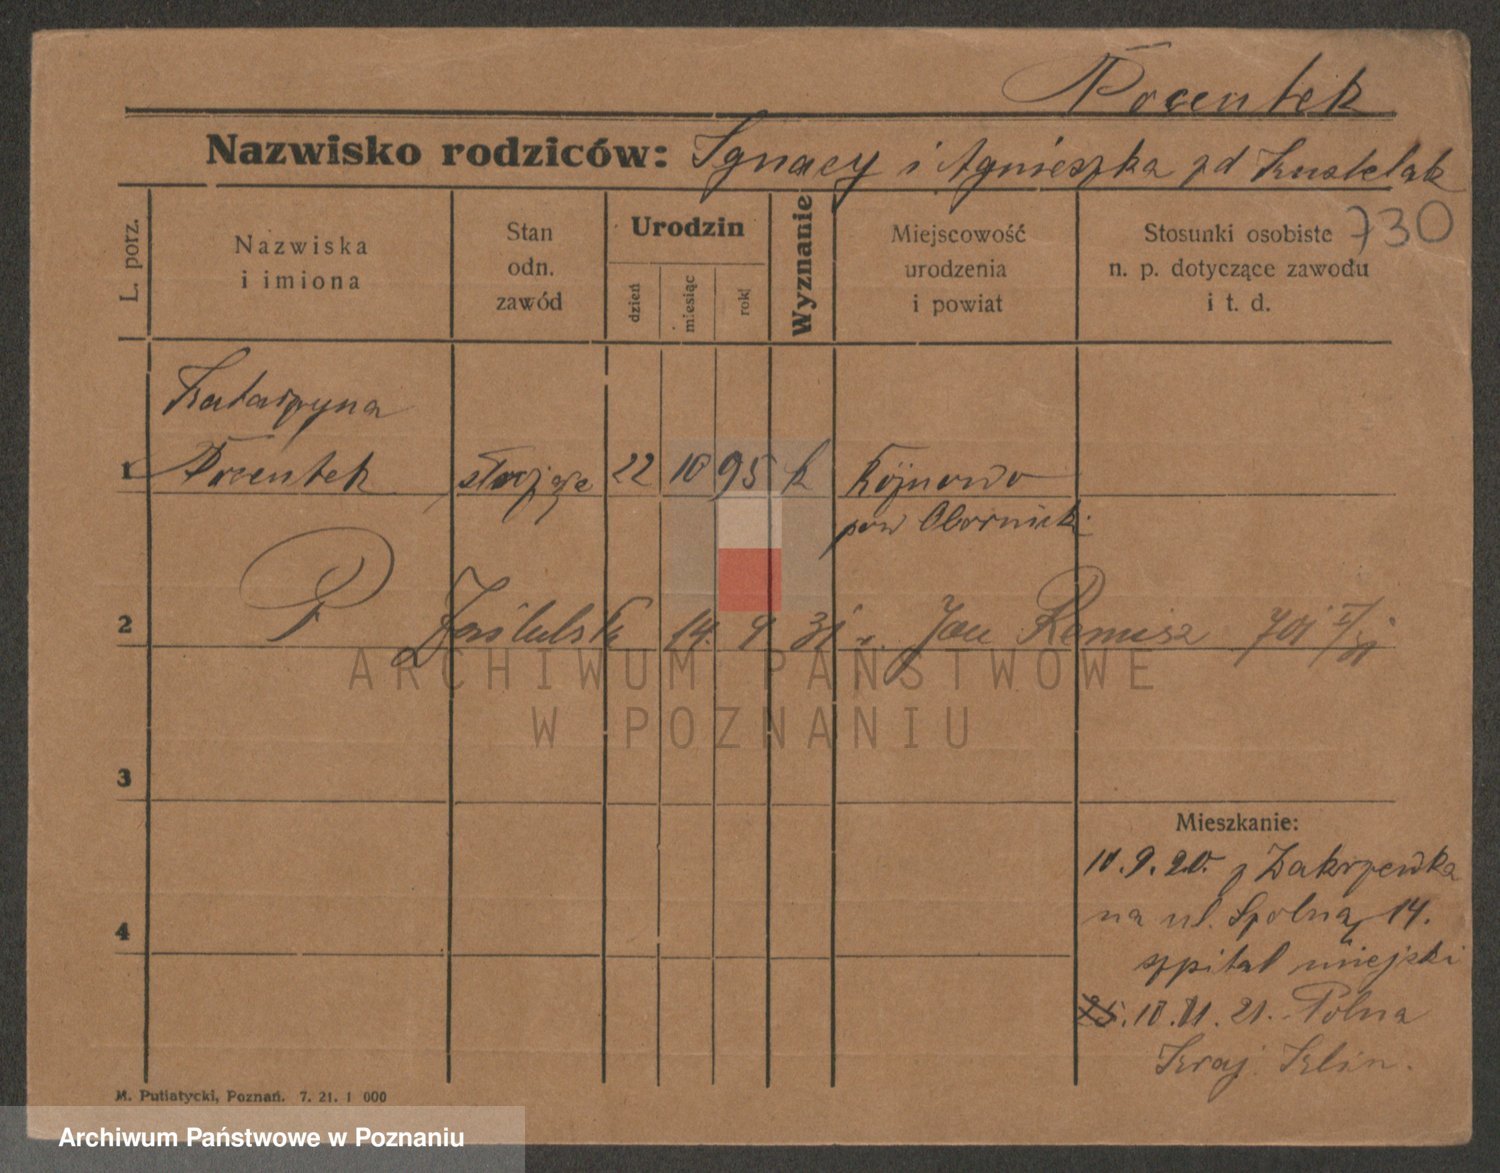 Porentek
Nazwisko rodziców: Ignacy i Agnieszka zd Kustelak
730
L. porz.
Nazwiska
i imiona
Stan
odn.
zawód
Urodzin
dzień
miesiąc
rok
Wyznanie
Miejscowość
urodzenia
i powiat
Stosunki osobiste
n. p. dotyczące zawodu
i t. d.
Katarzyna
1 Porentek służąca 22 10 95 k Kojnowo
pow Obornick.
2 P 14. 9 31 Jan Remisz
3
4
Mieszkanie:
10.9.20. z Zakrzewka
na ul. Spolną 14.
szpital miejski
25. 10. 11. 21. Polna
Kraj. Klin.
M. Putiatycki, Poznań. 7. 21. 1 000
ARCHIWUM PAŃSTWOWE
W POZNANIU
Archiwum Państwowe w Poznaniu